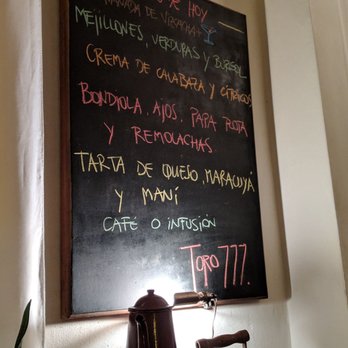 DE HOY
MEJILLONES, VERDURAS Y BURGOL
CREMA DE CALABAZA Y CÍTRICOS
BONDIOLA, AJOS, PAPA ROTA
Y REMOLACHAS
TARTA DE QUESO, MARACUYÁ
Y MANÍ
CAFÉ O INFUSIÓN
TORO 777.